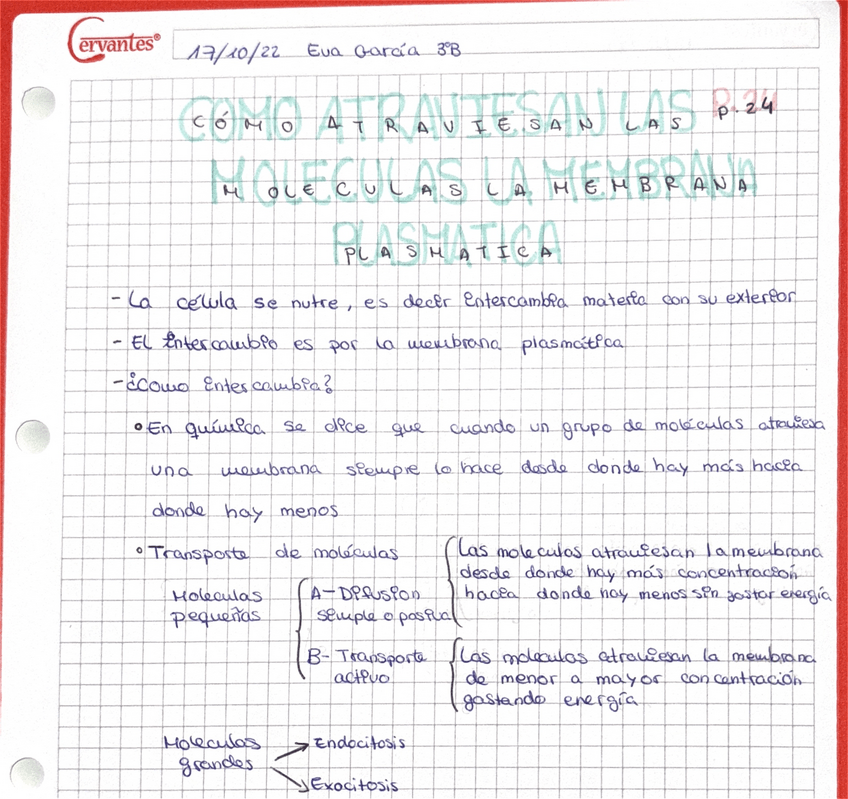 Cervantes®
17/10/22 Eva García 3ºB
CÓMO ATRAVIESAN LAS p.24
MOLECULAS LA MEMBRANA
PLASMATICA
- La célula se nutre, es decir intercambia materia con su exterior
- El intercambio es por la membrana plasmática
- ¿Como intercambia?
• En química se dice que cuando un grupo de moléculas atraviesa
una membrana siempre lo hace desde donde hay más hacia
donde hay menos
• Transporte de moléculas
Moleculas pequeñas
A- Difusion
simple o pasiva
Las moleculas atraviesan la membrana
desde donde hay más concentración
hacia donde hay menos sin gastar energía
B- Transporte
activo
Las moleculas atraviesan la membrana
de menor a mayor concentración
gastando energía
Moleculas
grandes
Endocitosis
Exocitosis